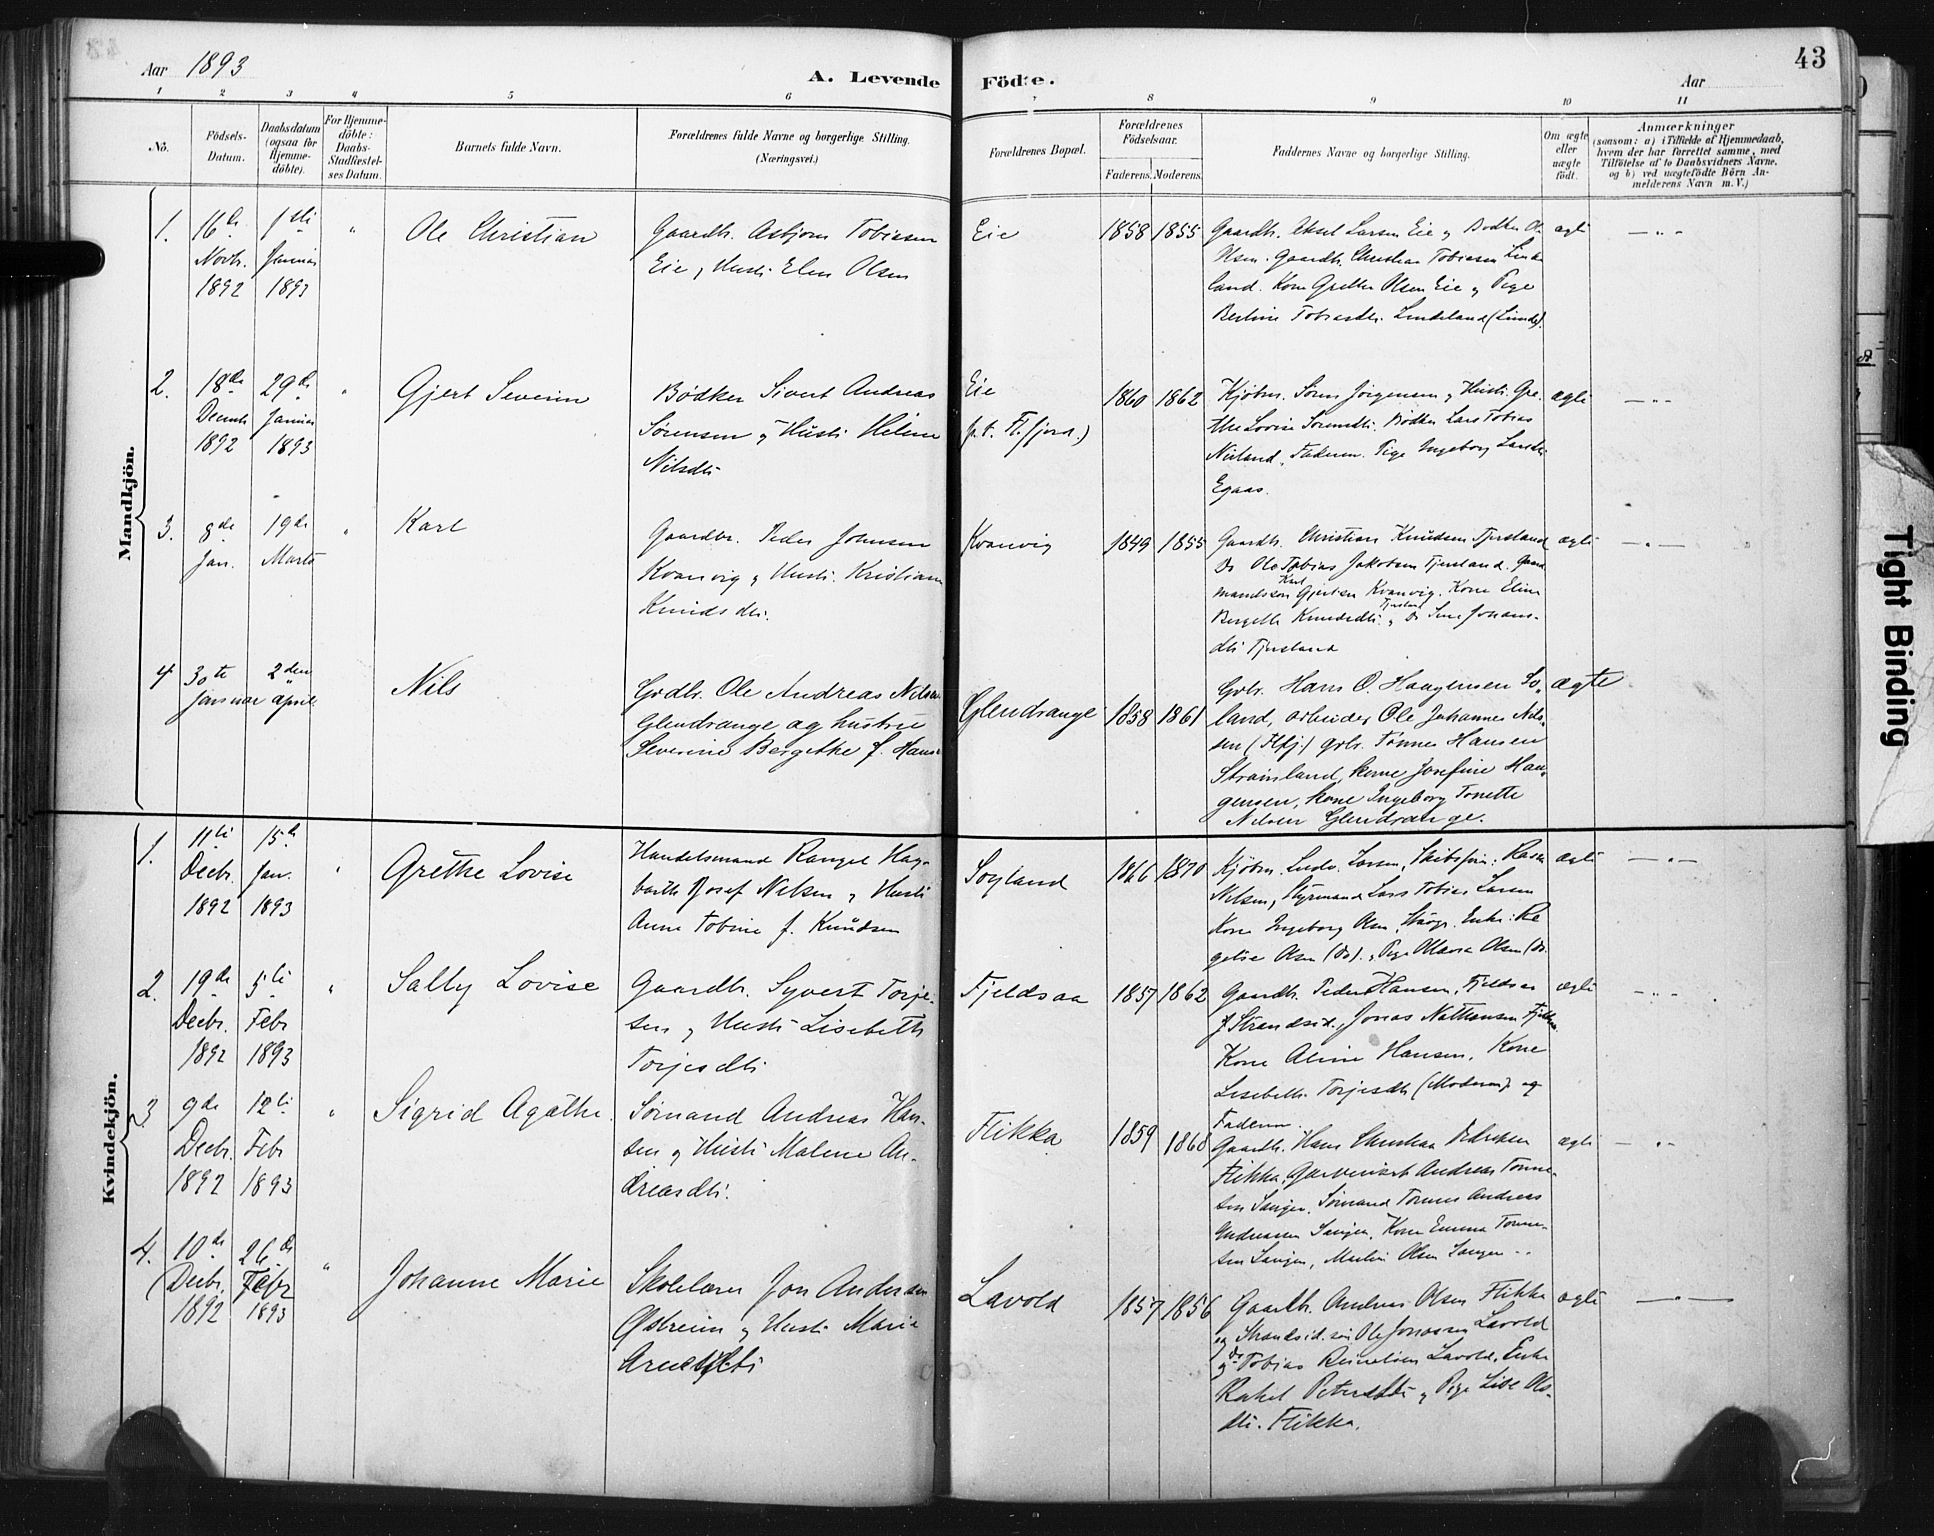 Aar 1893
A. Levende
Födte.
Aar
43
1 2 3 4 5 6 7 8 9 10 11
No.
Födsels-Datum.
Daabsdatum (ogsaa for Hjemme-döbte).
For Hjemme-döbte: Daabs-Stadfæstel-ses Datum.
Barnets fulde Navn.
Forældrenes fulde Navne og borgerlige Stilling. (Næringsvei.)
Forældrenes Bopæl.
Forældrenes Födselsaar.
Faderens. Moderens.
Faddernes Navne og borgerlige Stilling.
Om ægte eller uægte födt.
Anmærkninger
(saasom: a) i Tilfælde af Hjemmedaab,
hvem der har forrettet samme, med
Tilföielse af to Daabsvidners Navne,
og b) ved uægtefödte Börn An-
melderens Navn m. V.)
Mandkjön.
1. 16de Novbr. 1892
1ste Januar 1893
"
Ole Christian
Gaardbr. Asbjørn Tobiasen
Eie og Hustr. Elen Olsen
Eie
1858 1855
Gaardbr. Aksel Larsen Eie og Bødker
Olsen. Gaardbr. Christian Tobiasen
land. Kone Grethe Olsen Eie og Pige
Berline Tobiasdtr. Lindeland (Lunde).
ægte
— " —
2. 18de Decmb. 1892
29de Januar 1893
"
Gjert Severin
Bødker Sivert Andreas
Sørensen og Hustr. Helene
Nilsdtr
Eie
p. t. Fl.fjord.)
1860 1862
Kjøbm. Søren Jørgensen og Hustr. Gre-
the Lovise Sørensdtr. Bødker Lars Tobias
Faderen. Pige Ingeborg Larsdtr
Egaas.
ægte
— " —
3. 8de Jan.
19de Marts
"
Karl
Gaardbr. Peder Johnsen
Kvanvig og Hustr. Kristiane
Knudsdtr.
Kvanvig
1849 1855
Gaardbr. Christian Knudsen Tjersland
Do Ole Tobias Jakobsen Tjersland. Gaard-
mandssøn Karl Gjertsen Kvanvig. Kone Elen
Bergette Knudsdtr. Tjersland og Do Sine Johans-
dtr Tjersland
ægte
— " —
4 30te Januar
2den April
Nils
Grdbr. Ole Andreas Nilsen
Glendrange og hustru
Severine Bergithe f. Hans
Glendrange
1858 1861
Grbr. Hans O. Haagensen So-
land, arbeider Ole Johannes Nils-
sen (Flfj.) grbr. Tønnes Hansen
Strømsland, kone Josefine Haa-
gensen, kone Ingeborg Tonette
Nilsen Glendrange.
ægte
Kvindekjön.
1. 11te Decbr. 1892
15de Jan. 1893
"
Grethe Lovise
Handelsmand Rangel Hag-
barth Josef Nilsen og Hustr
Anne Tobine f. Knudsen
Sogland
1866 1870
Kjøbm. Ludv. Larsen, Skibsfør.
Nilsen, Styrmand Lars Tobias Larsen
Kone Ingeborg Olsen, Enke
Olsen (Do). og Pige Maria Olsen (Do.
ægte
— " —
2. 19de Decbr. 1892
5te Febr 1893
"
Sally Lovise
Gaardbr. Syvert Torje-
sen og Hustr Lisebeth
Torjesdtr
Fjeldsaa
1857 1862
Gaardbr. Peder Hansen, Fjeldsaa
Strandsid., Jonas Nathansen Fjeldsaa
Kone Aline Hansen, Kone
Lisebeth Torjesdtr (Moderen) og
Faderen.
ægte
— " —
3 9de Decbr. 1892
12te Febr 1893
"
Sigrid Agathe.
Sømand Andreas Han-
sen og Hustr Malene An-
dreasdtr.
Flikka
1859 1868
Gaardbr. Hans Christian
Flikka, Andreas Tønne-
sen Sømand Tønnes Andreas
Andreassen Kone Emma Tønne-
sen Olsen
ægte
— " —
4. 10de Decbr. 1892
26de Febr 1893
"
Johanne Marie
Skolelærer Jon Andersen
Østreim og Hustr. Marie
Arnesdtr
Lavold
1857 1856
Gaardbr. Andreas Olsen Flikka
og Strandsid. søn Ole Jonassen Lavold
og Do Tobias Lavold, Enke
Rakel Petersdtr og Pige Lise Ols-
dtr. Flikka.
ægte
— " —
Tight Binding